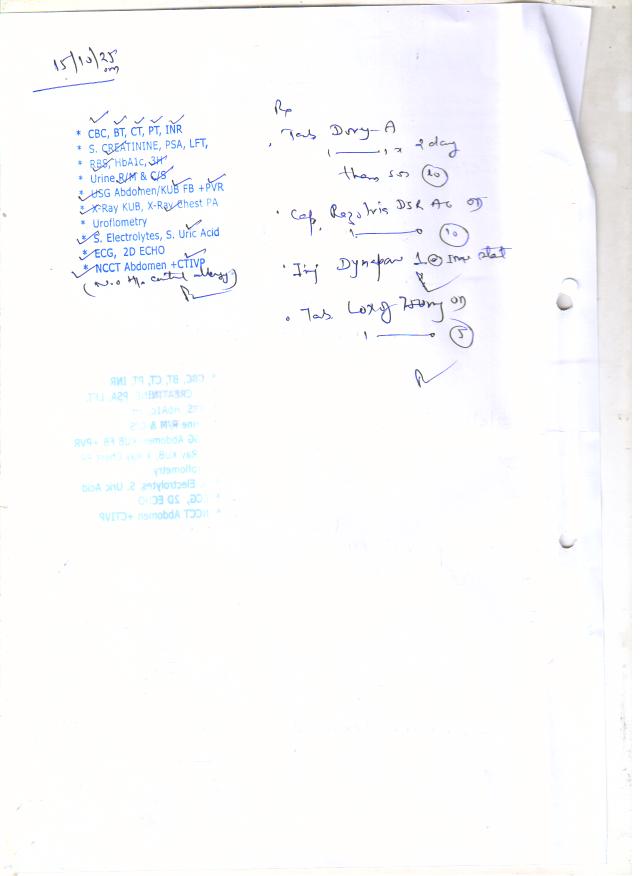 15/10/25
* CBC, BT, CT, PT, INR
* S. CREATININE, PSA, LFT,
* RBS, HbA1c, 3H
* Urine R/M & C/S
* USG Abdomen/KUB FB +PVR
* X-Ray KUB, X-Ray Chest PA
* Uroflometry
* S. Electrolytes, S. Uric Acid
* ECG, 2D ECHO
* NCCT Abdomen +CTIVP
Rx
Tab
1 1 x 2 day
then sos 10
Cap. DSR AC OD
1 0 10
Inj Dynapar 1 stat
Tab OD
1 0 5
* CBC, BT, CT, PT, INR
CREATININE, PSA, LFT,
HbA1c,
Urine R/M & C/S
USG Abdomen KUB FB +PVR
Ray KUB, X-Ray Chest
Uroflometry
Electrolytes, S. Uric Acid
* ECG, 2D ECHO
* NCCT Abdomen +CTIVP